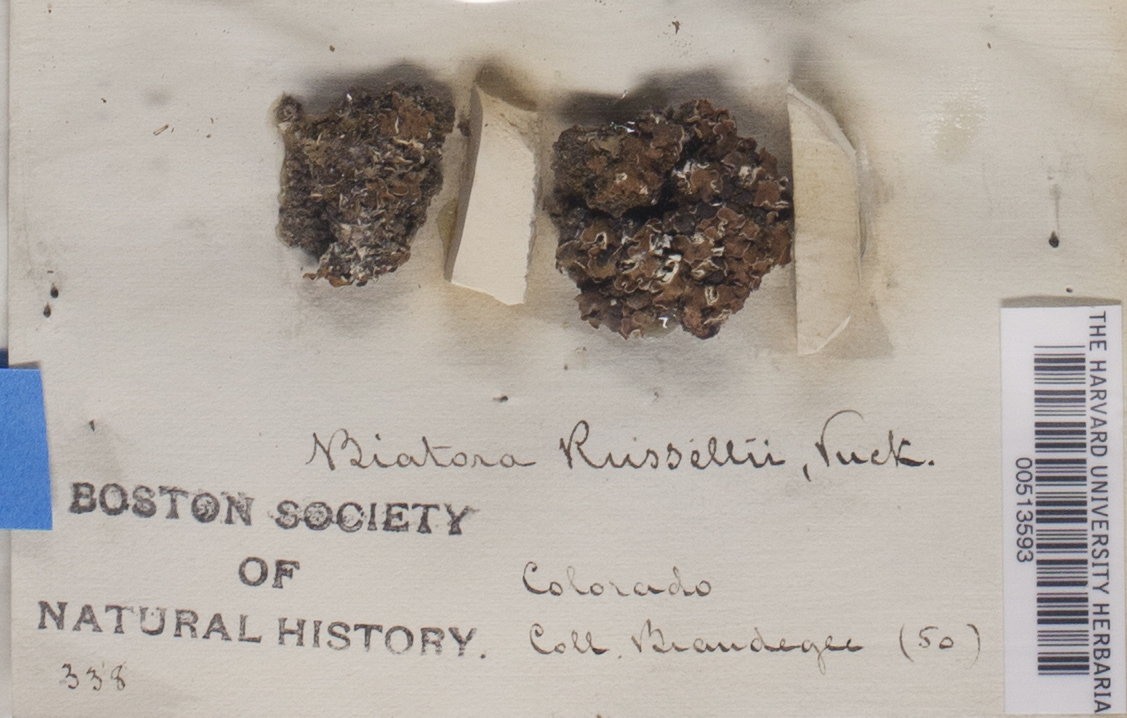 Biatora Russellii, Tuck.
BOSTON SOCIETY
OF
NATURAL HISTORY.
Colorado
Coll. Brandegee (50)
338
THE HARVARD UNIVERSITY HERBARIA
00513593